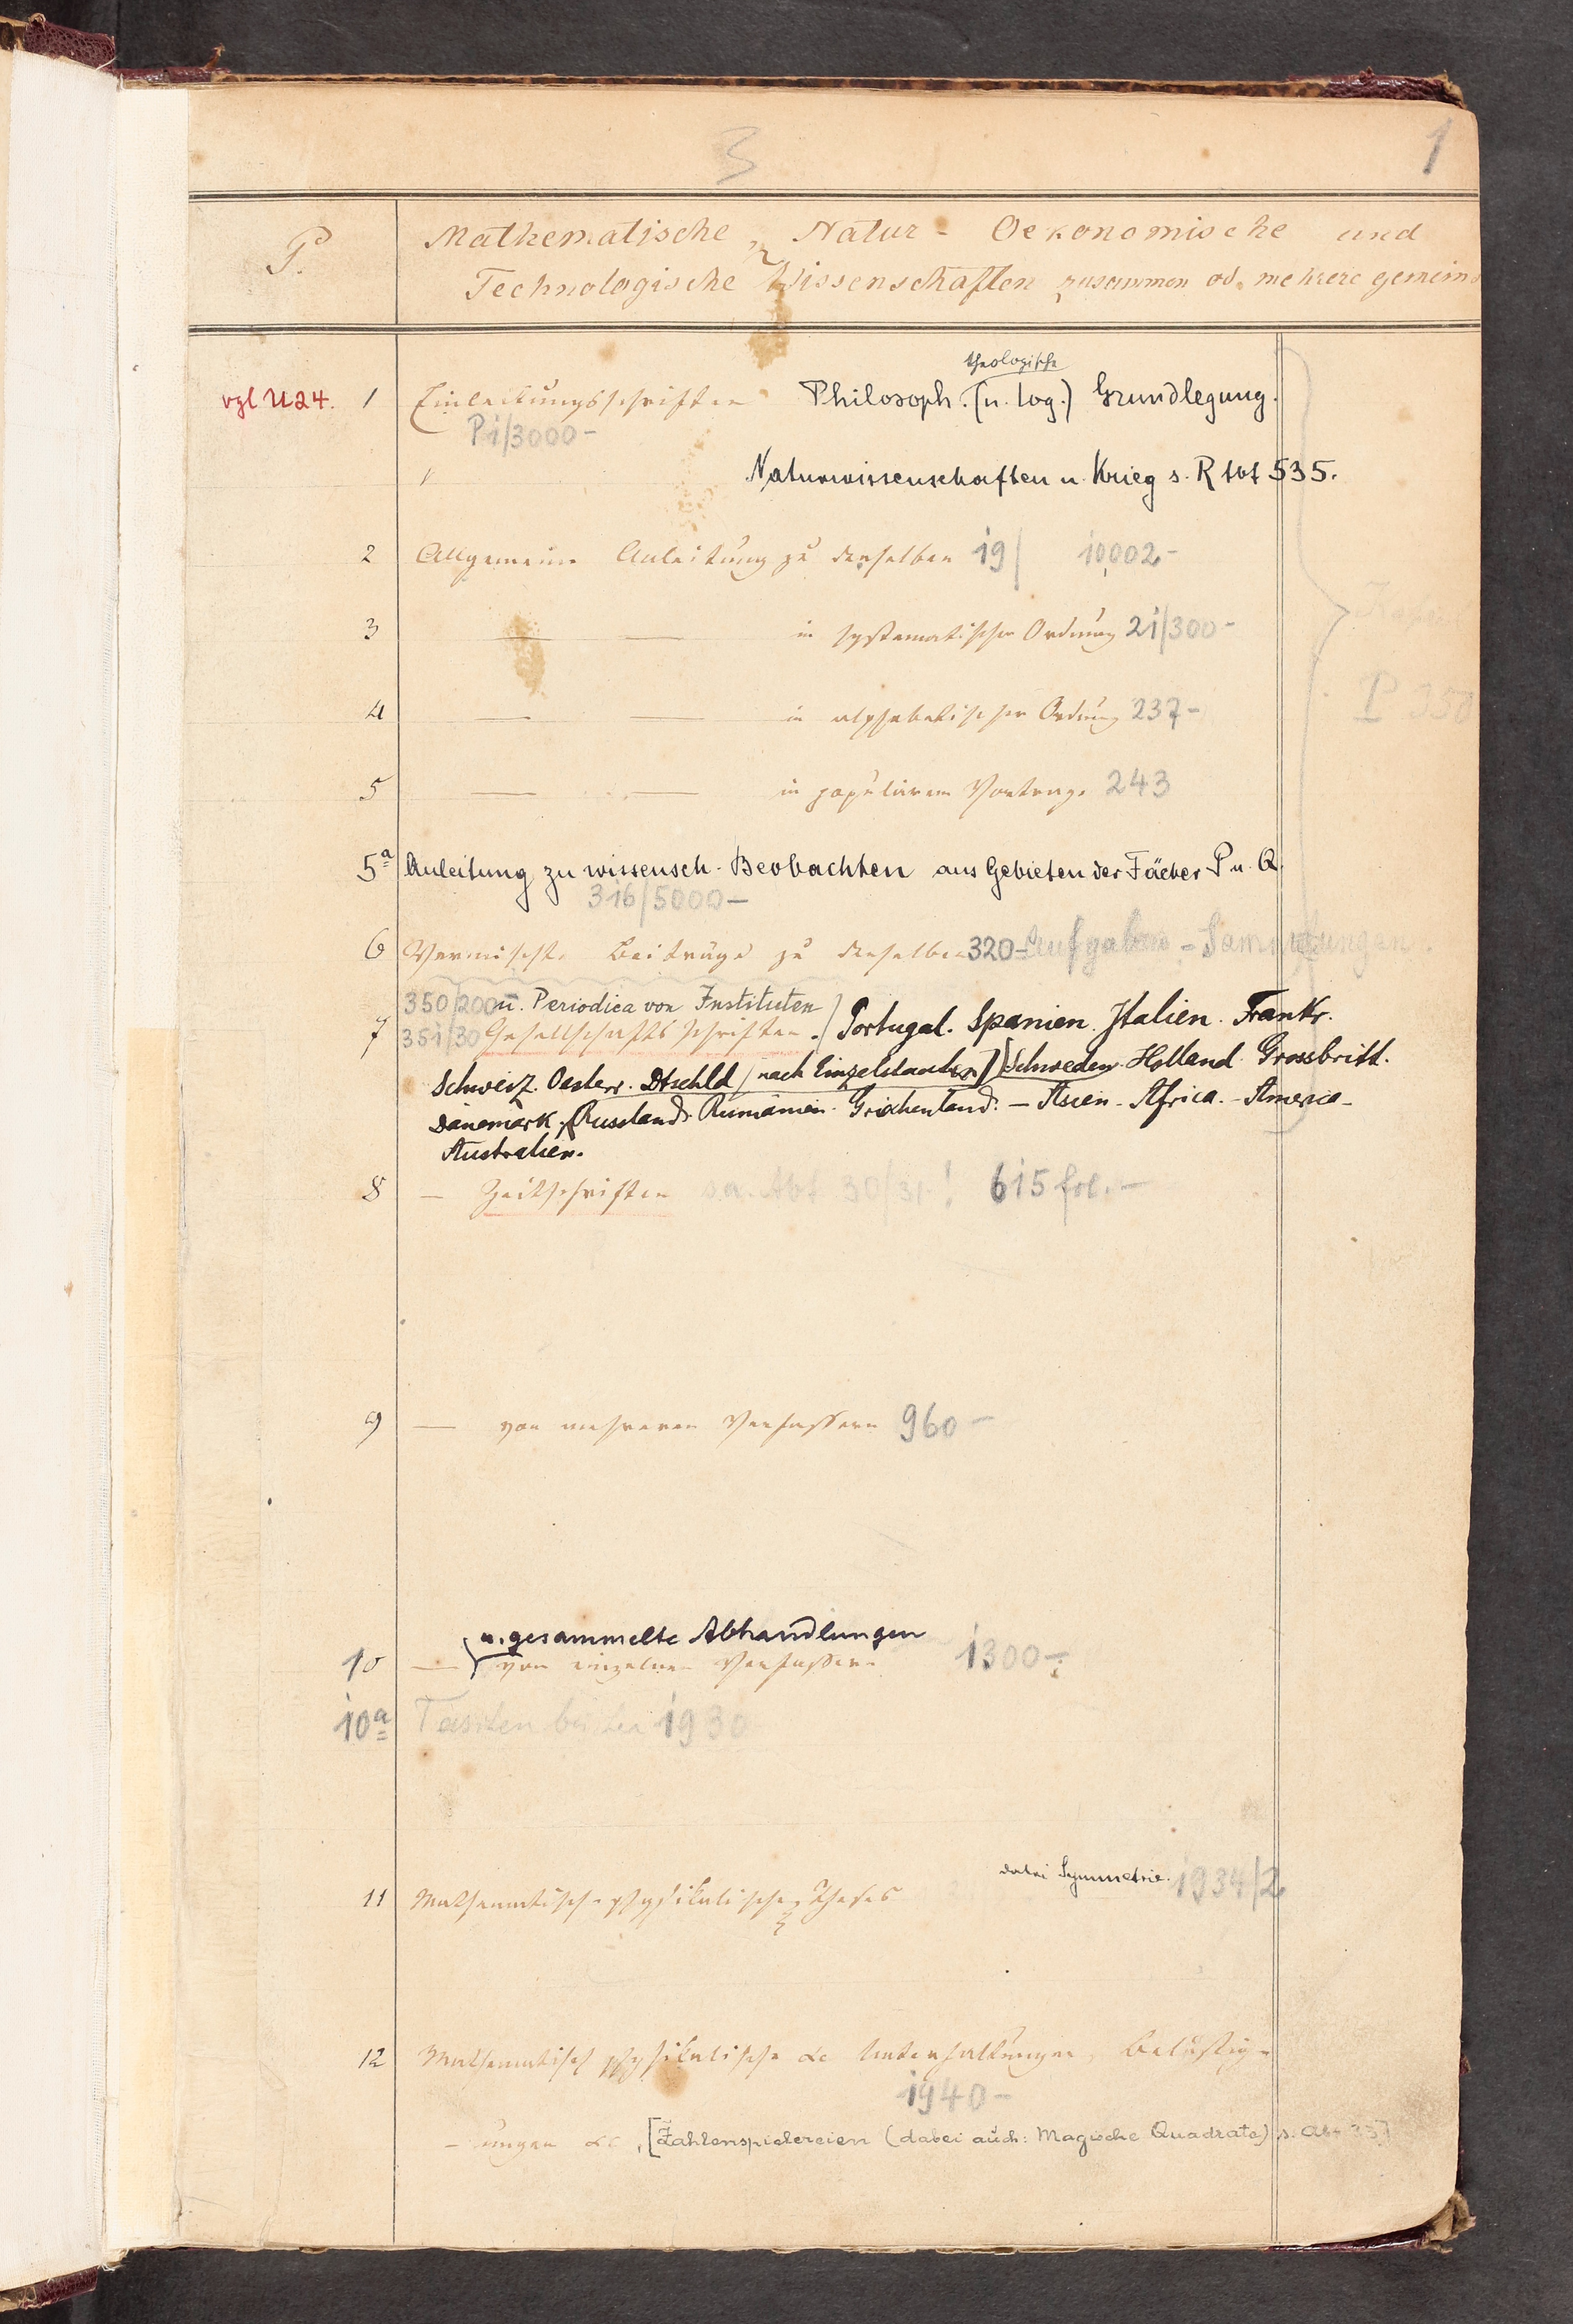 3
1
P.
Mathematische, Natur- Oekonomische und
Technologische Wissenschaften zusammen od. mehrere gemeins
theologische
vgl U24. 1 Einleitungsschriften Philosoph. (u. log.) Grundlegung.
P 1/3000-
Naturwissenschaften u. Krieg s. R tot 535.
2 Allgemeine Anleitung zu denselben 19/ 10,002-
3 — — in systematischer Ordnung 21/300-
4 — — in alphabetischer Ordnung 237-
P 350
5 — — in populärem Vortrage 243
5a Anleitung zu wissensch. Beobachten aus Gebieten der Fächer P u. Q.
316/5000-
6 Vermischte Beiträge zu denselben 320- Aufgaben-Sammlungen.
350/200 u. Periodica von Instituten
7 351/30 Gesellschaftsschriften. Portugal. Spanien. Italien. Frankr.
Schweiz. Oesterr. Dtschld (nach Einzelstaaten) Schweden. Holland. Grossbritt.
Dänemark. Russland. Rumänien. Griechenland. — Asien - Africa. - America -
Australien.
8 — Zeitschriften s.a. Abt 30/31! 615 fol. -
9 — von mehreren Verfassern 960-
u. gesammelte Abhandlungen
10 — von einzelnen Verfassern 1300-
10a Taschenbücher 1930
dabei Symmetrie. 1934/2
11 Mathematisch-physikalische Theses
12 Mathematisch physikalische &c Unterhaltungen, Belustig-
1940-
- ungen &c, [Zahlenspielereien (dabei auch: Magische Quadrate) s. Abt 33]